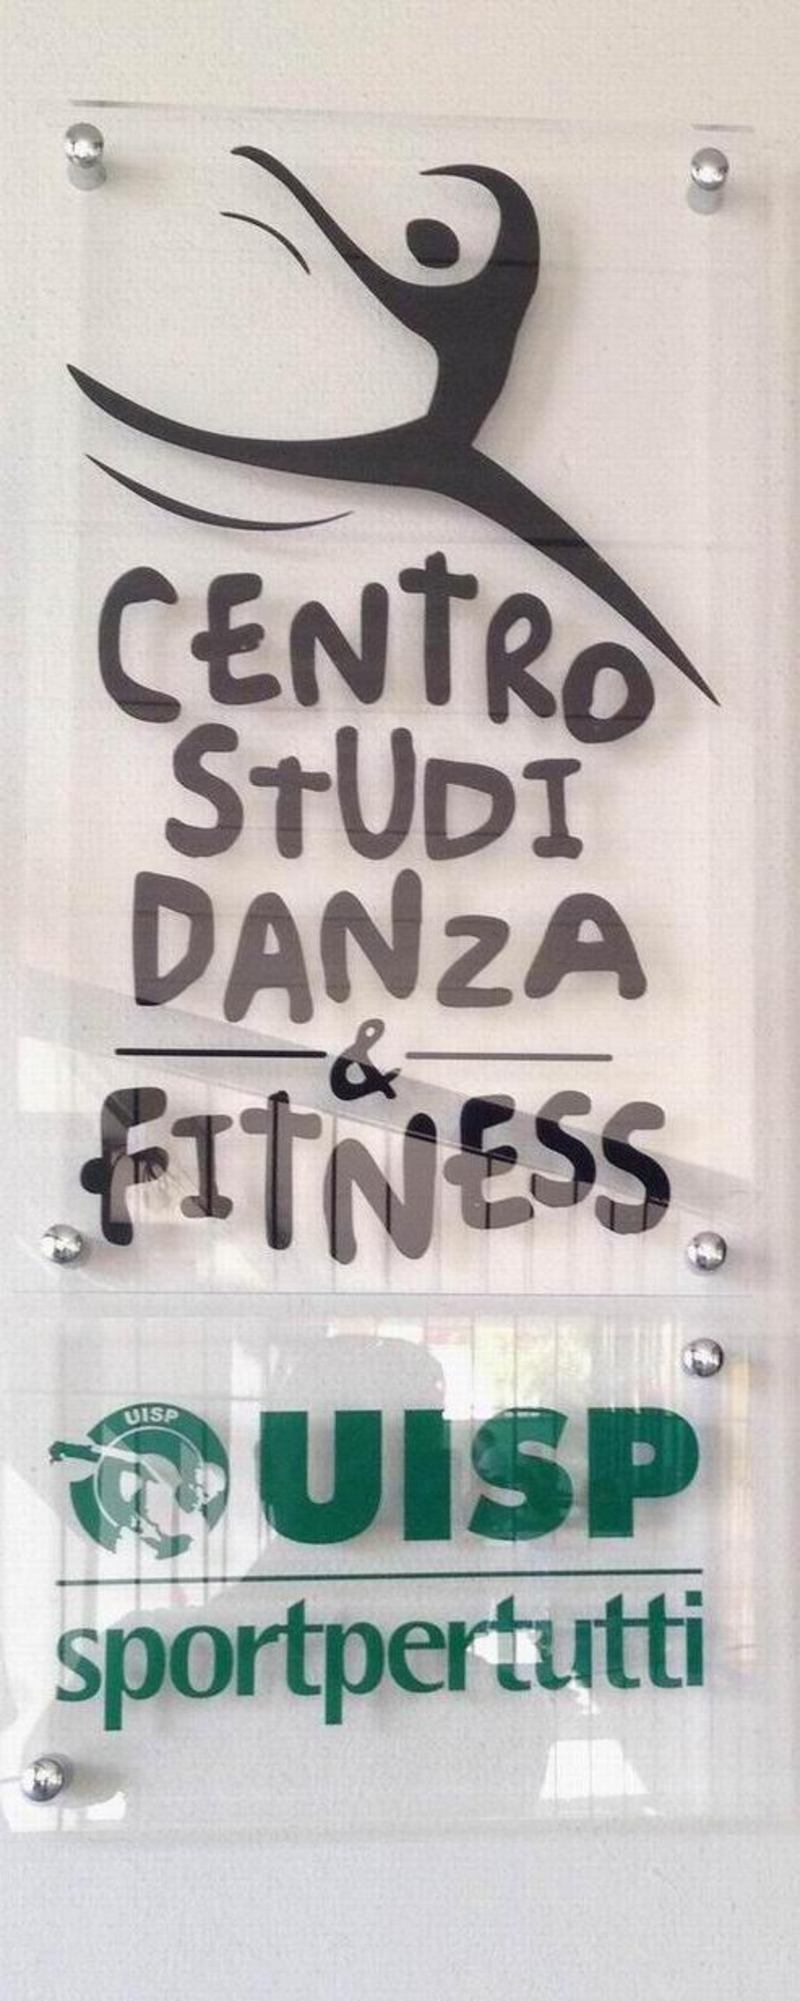 CENTRO
STUDI
DANZA
&
FITNESS
UISP
UISP
sportpertutti